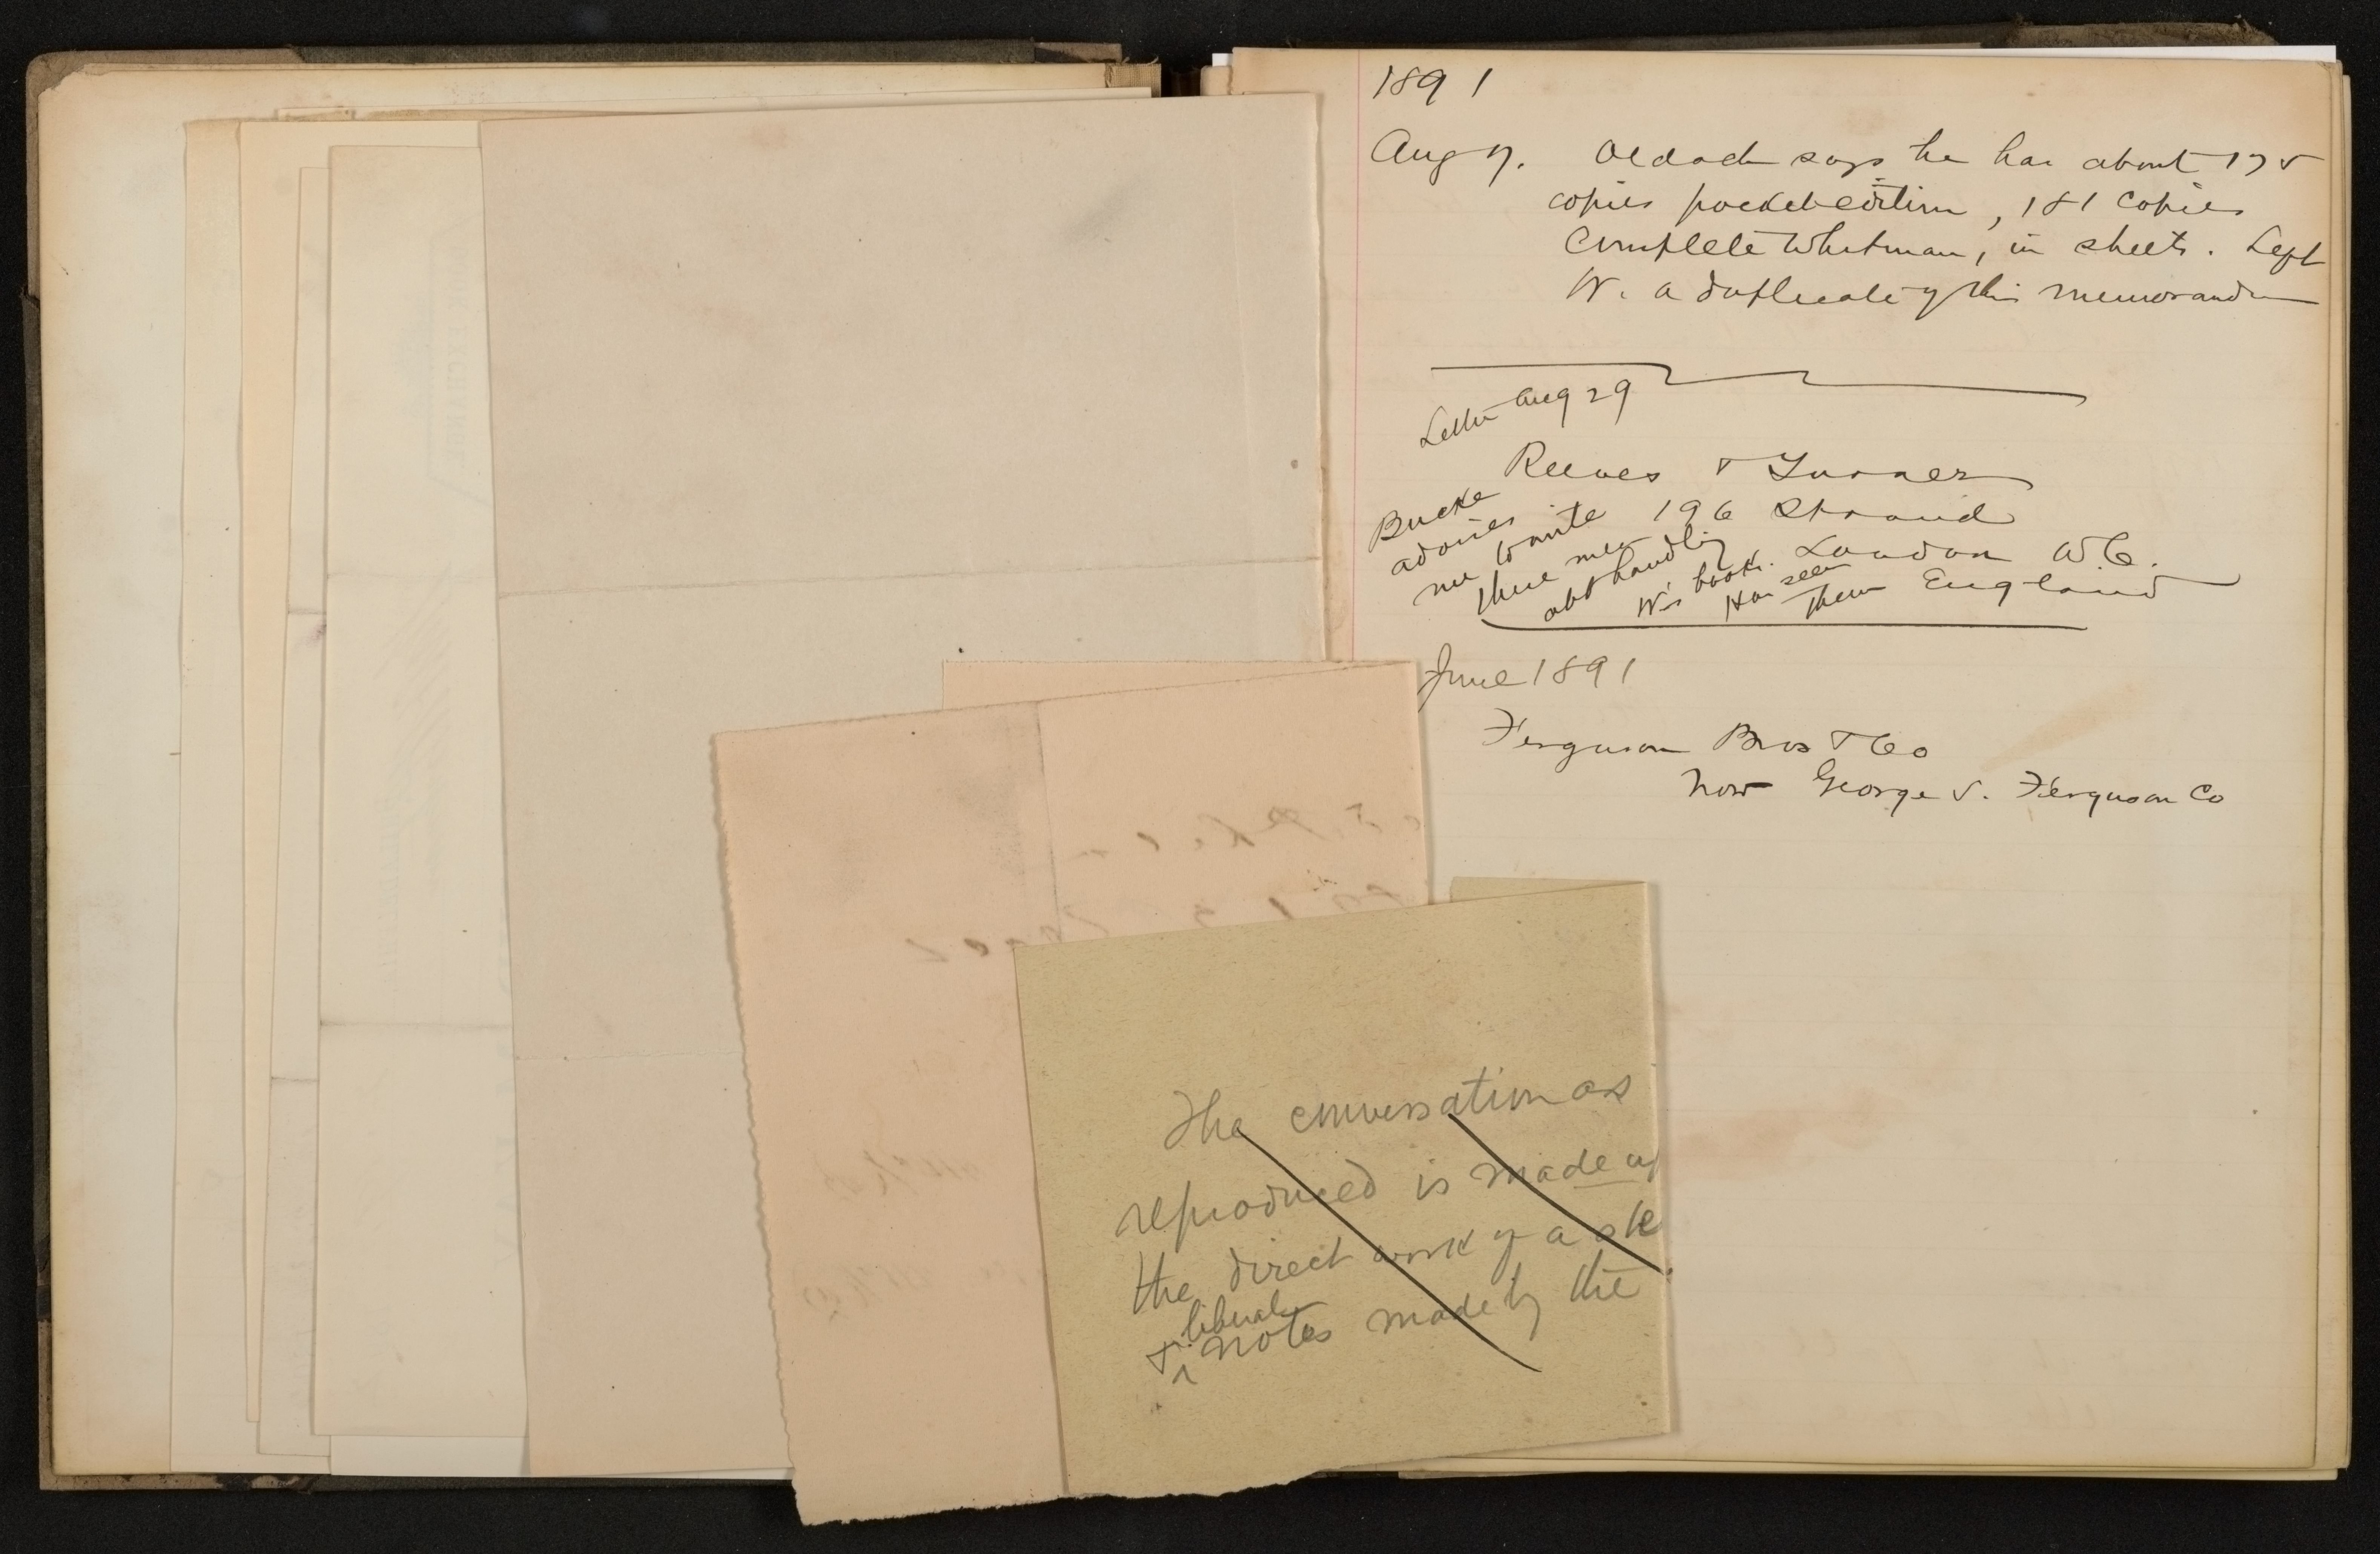 1891
Aug 7. Oldach says he has about 175
copies pocket edition, 181 copies
Complete Whitman, in sheets. Left
W. a duplicate of this memorandum
Letter Aug 29
Reeves & Turner
196 Strand
London W.C.
England
Bucke
advises
me write
these men
abt handling
W's books.
Has seen
them
June 1891
Ferguson Bros & Co
now George S. Ferguson Co
The conversation as
reproduced is made up
the direct work of a ste
& liberal notes made by the